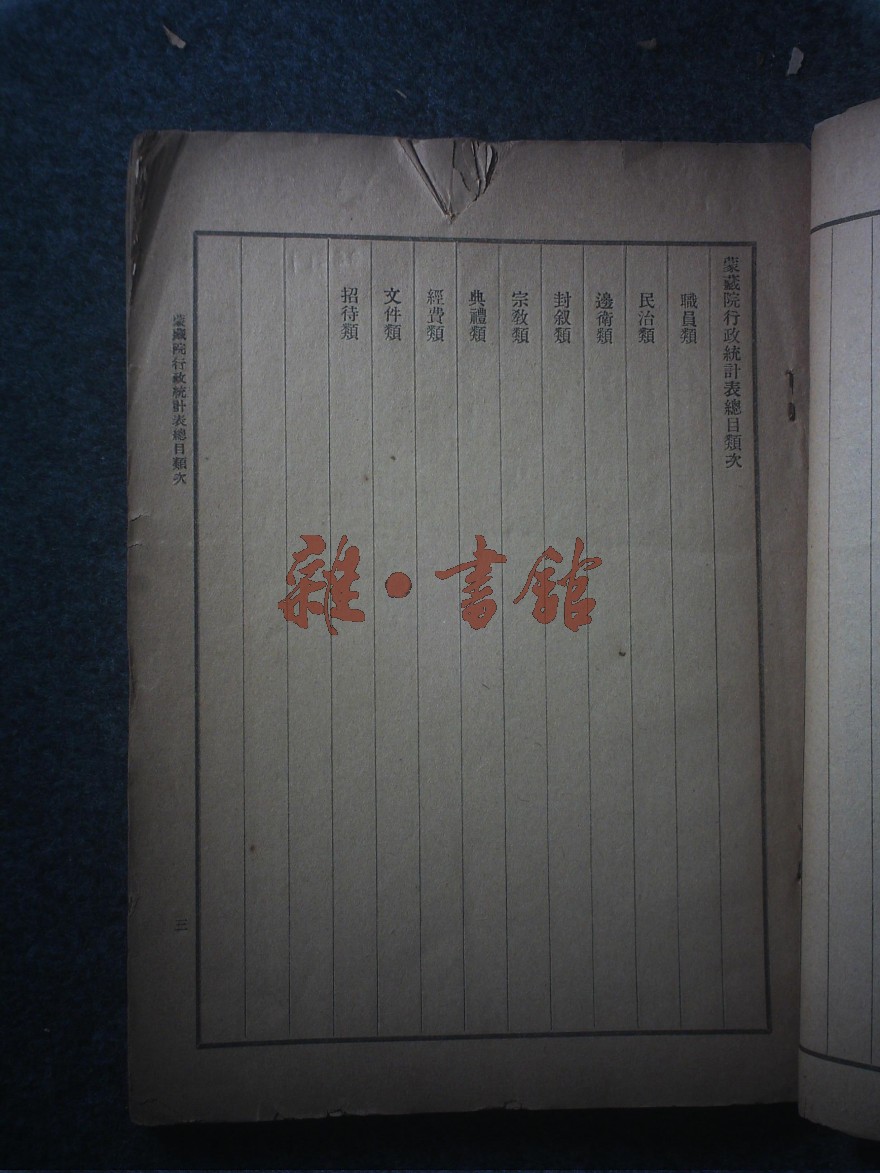 蒙藏院行政統計表總目類次
職員類
民治類
邊衛類
封叙類
宗教類
典禮類
經費類
文件類
招待類
蒙藏院行政統計表總目類次
三
雜·書館